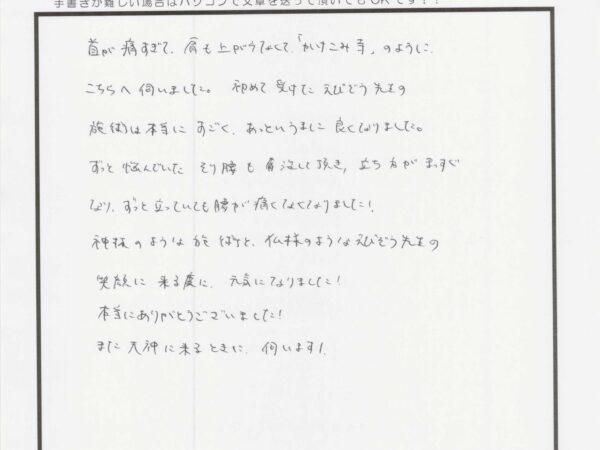 手書きが難しい場合はパソコンで文章を送って頂いてもOKです！！
首が痛すぎて、肩も上がらなくて、「かけこみ寺」のように、
こちらへ伺いました。初めて受けた えびぞう先生の
施術は本当に すごく、あっというまに 良くなりました。
ずっと悩んでいた そり腰も 解決して頂き、立ち方が まっすぐ
なり、ずっと立っていても腰が痛くなくなりました！
神様のような施術と、仏様のような えびぞう先生の
笑顔に 来る度に、元気になりました！
本当にありがとうございました！
また 天神に来るときに、伺います！